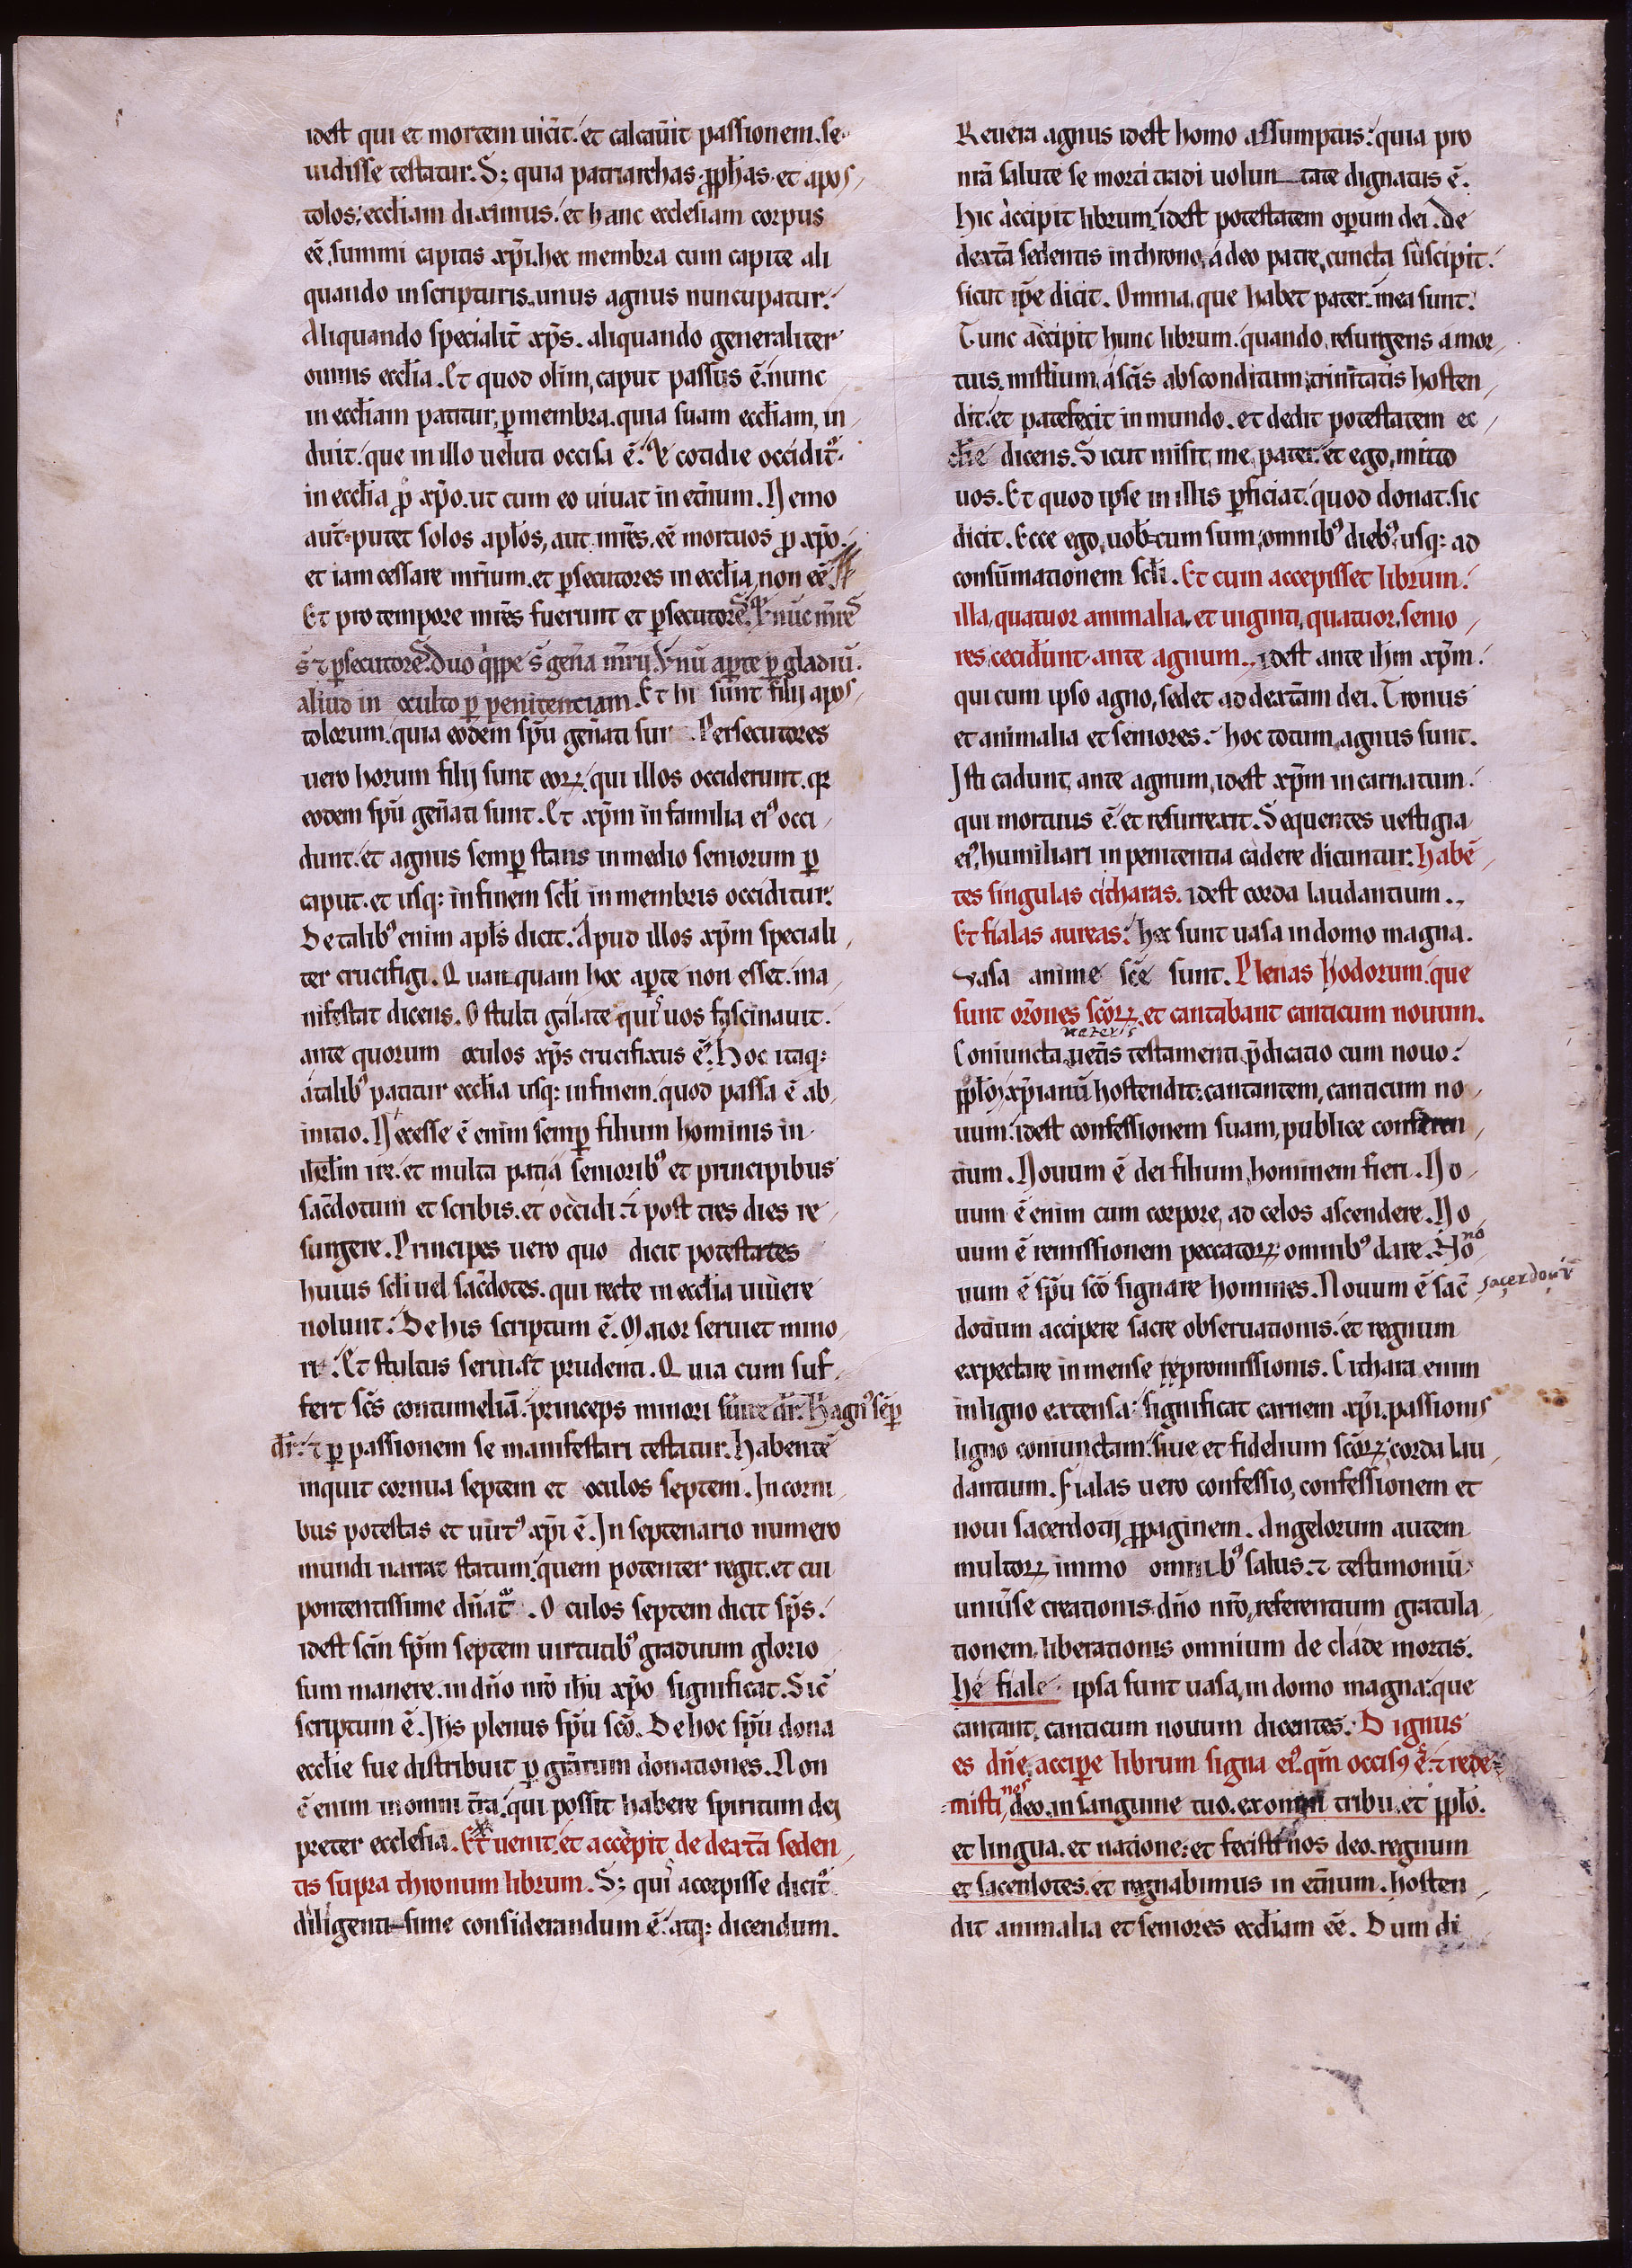 idest qui et mortem uicit. et calcauit passionem. se
uidisse testatur. S; quia patriarchas. ꝓphas. et apos
tolos; eccl̄iam diximus. et hanc ecclesiam corpus
eē. summi capitis xp̄i. hec membra cum capite ali
quando in scripturis. unus agnus nuncupatur.
Aliquando specialit̄ xp̄s. aliquando generaliter
omnis eccl̄ia. Et quod olim, caput passus ē. nunc
in eccl̄iam patitur, ꝑ membra. quia suam eccl̄iam, in
duit. que in illo ueluti occisa ē. & cotidie occidit᷒
in eccl̄ia ꝓ xp̄o. ut cum eo uiuat in et̄num. Nemo
aut̄ putet solos apl̄os, aut mr̄es. eē mortuos ꝓ xp̄o.
et iam cessare mr̄ium. et ꝑsecutores in eccl̄ia, non eē
Et pro tempore mr̄es fuerunt et ꝑsecutores. & nūc mr̄es
s̄ ⁊ ꝑsecutores. Duo q̇ppe s̄ gen̄a mr̄ij. Vnū aꝑte ꝑ gladiū.
aliud in oculto ꝑ penitenciam. Et hi sunt filij apos
tolorum. quia eodem sp̄u gen̄ati sur Persecutores
uero horum filij sunt eoꝝ. qui illos occiderunt. qꝛ
eodem sp̄u gen̄ati sunt. Et xp̄m in familia ei᷒ occi
dunt. et agnus semꝑ stans in medio seniorum ꝑ
caput. et usq; in finem scl̄i in membris occiditur.
De talib᷒ enim apl̄s dicit. Apud illos xp̄m speciali
ter crucifigi. Quanquam hoc aꝑte non esset. ma
nifestat dicens. O stulti galate quis uos fascinauit.
ante quorum oculos xp̄s crucifixus ē. hoc itaq;
a talib᷒ patitur eccl̄ia usq; in finem. quod passa ē ab
initio. Necesse ē enim semꝑ filium hominis in
ihrl̄m ire. et multa pati a seniorib᷒ et principibus
sac̄dotum et scribis. et occidi ⁊ post tres dies re
surgere. Principes uero quo dicit potestates
huius scl̄i uel sac̄dotes. qui recte in eccl̄ia uiuere
nolunt. De his scriptum ē. Maior seruiet mino
ri. Et stultus seruiet prudenti. Quia cum suf
fert sc̄s contumeliā. princeps minori seruire dr̄. H agn᷒ semꝑ
dr̄. ⁊ ꝑ passionem se manifestari testatur. habente
inquit cornua septem et oculos septem. In corni
bus potestas et uirt᷒ xp̄i ē. In septenario numero
mundi narrat statum. quem potenter regit. et cui
pontentissime dn̄at᷒. Oculos septem dicit sp̄s.
idest scm̄ sp̄m septem uirtutib᷒ graduum glorio
sum manere. in dn̄o nr̄o ihu xp̄o significat. Sic̄
scriptum ē. Ihs plenus sp̄u scō. De hoc sp̄u dona
eccl̄ie sue distribuit ꝑ gr̄arum donationes. Non
ē enim in omni t̄ra. qui possit habere spiritum dei
preter ecclesia. Et uenit. et accepit de dext̄a seden
tis supra thronum librum. S; qui accepisse dicit᷒
diligenti-sime considerandum ē. atq; dicendum.
Reuera agnus idest homo assumptus. quia pro
nr̄a salute se morti tradi uolun tate dignatus ē.
hic accipit librum. idest potestatem operum dei. De
dext̄a sedentis in throno, a deo patre, cuncta suscipit.
sicut ip̄e dicit. Omnia, que habet pater. mea sunt.
Tunc accipit hunc librum. quando, resurgens a mor
tuis, mist̄ium, a scl̄is absconditum, trinitatis hosten
dit. et patefecit in mundo. et dedit potestatem ec
cl̄ie dicens. Sicut misit, me, pater. et ego, mitto
uos. Et quod ipse in illis ꝑficiat. quod donat. sic
dicit. Ecce ego, uob cum sum, omnib᷒ dieb᷒, usq; ad
consūmationem scl̄i. Et cum accepisset librum.
illa, quatuor animalia, et uiginti, quatuor, senio
res, cecider̄unt ante agnum., idest ante ihm xp̄m.
qui cum ipso agno, sedet ad dext̄am dei. Tronus
et animalia et seniores. hoc totum, agnus sunt.
Isti cadunt, ante agnum, idest xp̄m in carnatum.
qui mortuus ē. et resurrexit. Sequentes uestigia
ei᷒, humiliari in penitentia cadere dicuntur. habē
tes singulas citharas. idest corda laudantium.,
Et fialas aureas. hec sunt uasa in domo magna.
Vasa anime scē sunt. Plenas hodorum. que
sunt or̄ones scōꝝ. et cantabant canticum nouum.
ueteris
Coniuncta, uet̄is testamenti p̄dicatio cum nouo.
ppl̄o xp̄ianū hostendit. cantantem, canticum no
uum. idest confessionem suam, publice conferen
tium. Nouum ē dei filium, hominem fieri. No
uum ē enim cum corpore, ad celos ascendere. No
uum ē remissionem peccatoꝝ omnib᷒ dare. No no
uum ē sp̄u scō signare homines. Nouum ē sac̄ sacerdotiū
dotium accipere sacre obseruationis. et regnum
expectare in mense repromissionis. Cithara enim
in ligno extensa. significat carnem xp̄i. passionis
ligno coniunctam. siue et fidelium scōꝝ corda lau
dantium. Fialas uero confessio, confessionem et
noui sacerdotij ꝓpaginem. Angelorum autem
multoꝝ immo omnib᷒ salus. ⁊ testimoniū.
uniūse creationis. dn̄o nr̄o, referentium gratula
tionem, liberationis omnium de clade mortis.
hē fiale ipsa sunt uasa, in domo magna. que
cantant, canticum nouum dicentes. Dignus
es dn̄e, accipere librum signa ei᷒. qm̄ occis᷒ ēs. ⁊ rede
misti, nos deo. in sanguine tuo. ex omni tribu. et ppl̄o.
et lingua. et natione. et fecisti nos deo. regnum
et sacerdotes. et regnabimus in et̄num. hosten
dit animalia et seniores eccl̄iam eē. Dum di